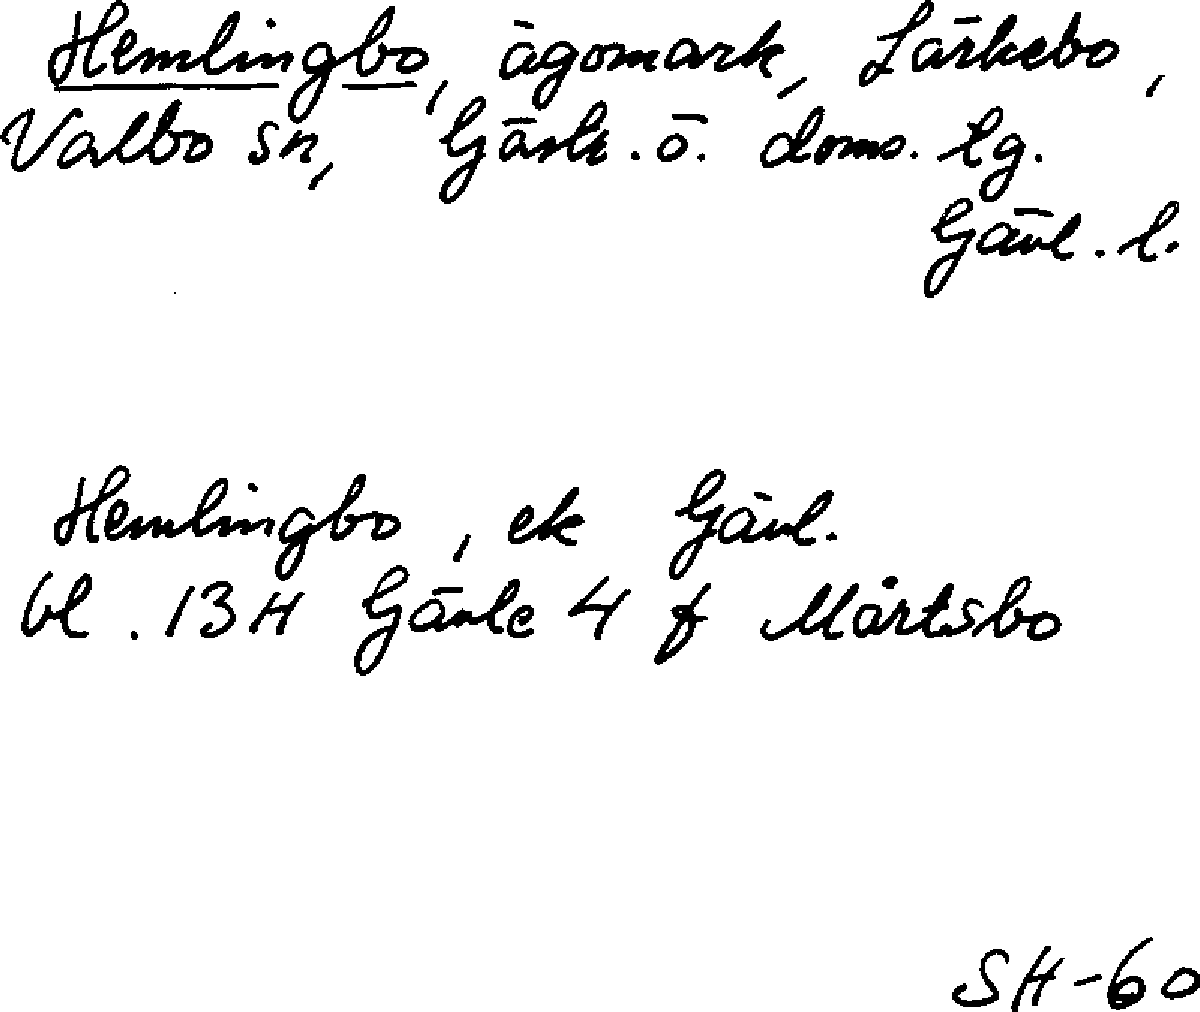 Hemlingbo, ägomark, Lärkebo,
Valbo sn, Gästr. ö. doms. lg.
Gävl. l.
Hemlingbo, ek Gävl.
bl. 13H Gävle 4 f Mårtsbo
SH-60